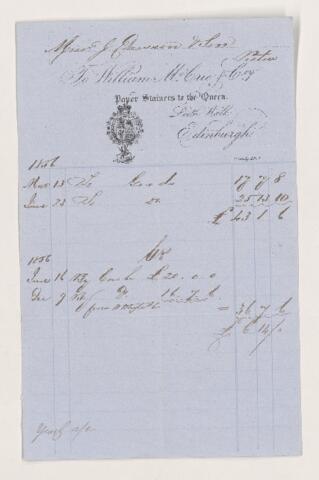 Messrs J. Dawson & Son
To William McCrie & Coy
Paper Stainers to the Queen.
Leith Walk
Edinburgh
1856
Mar 13 To Goods 17 7 8
June 23 To do 25 13 10
£ 43 1 6
Cr
1856
June 16 By Cash £20. 0. 0
Dec 9 By Do 16 7 6
= 36 7 6
£ 6 14/0